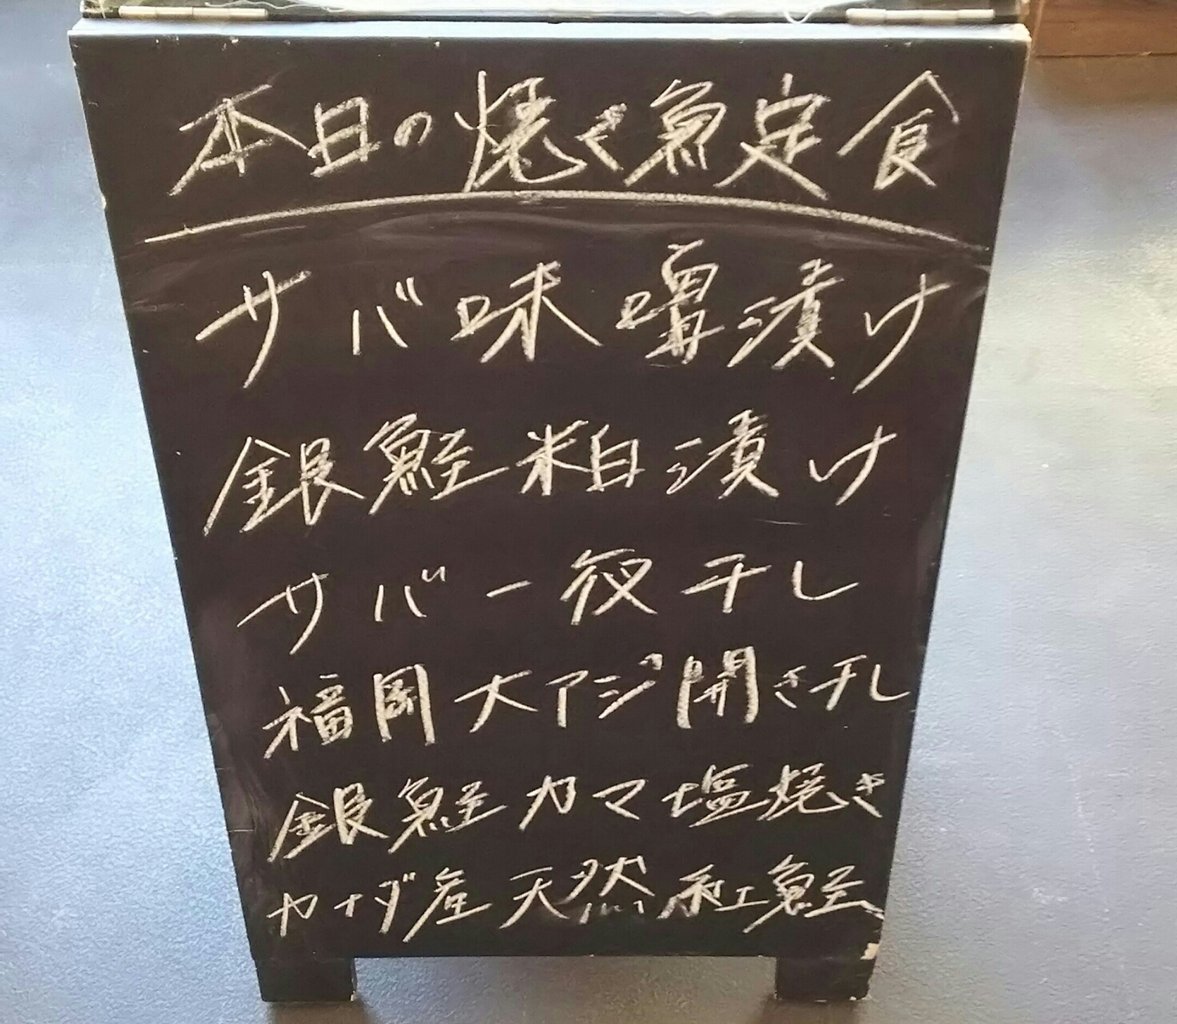 本日の焼き魚定食
サバ味噌漬け
銀鮭粕漬け
サバ一夜干し
福岡大アジ開き干し
銀鮭カマ塩焼き
カナダ産天然紅鮭